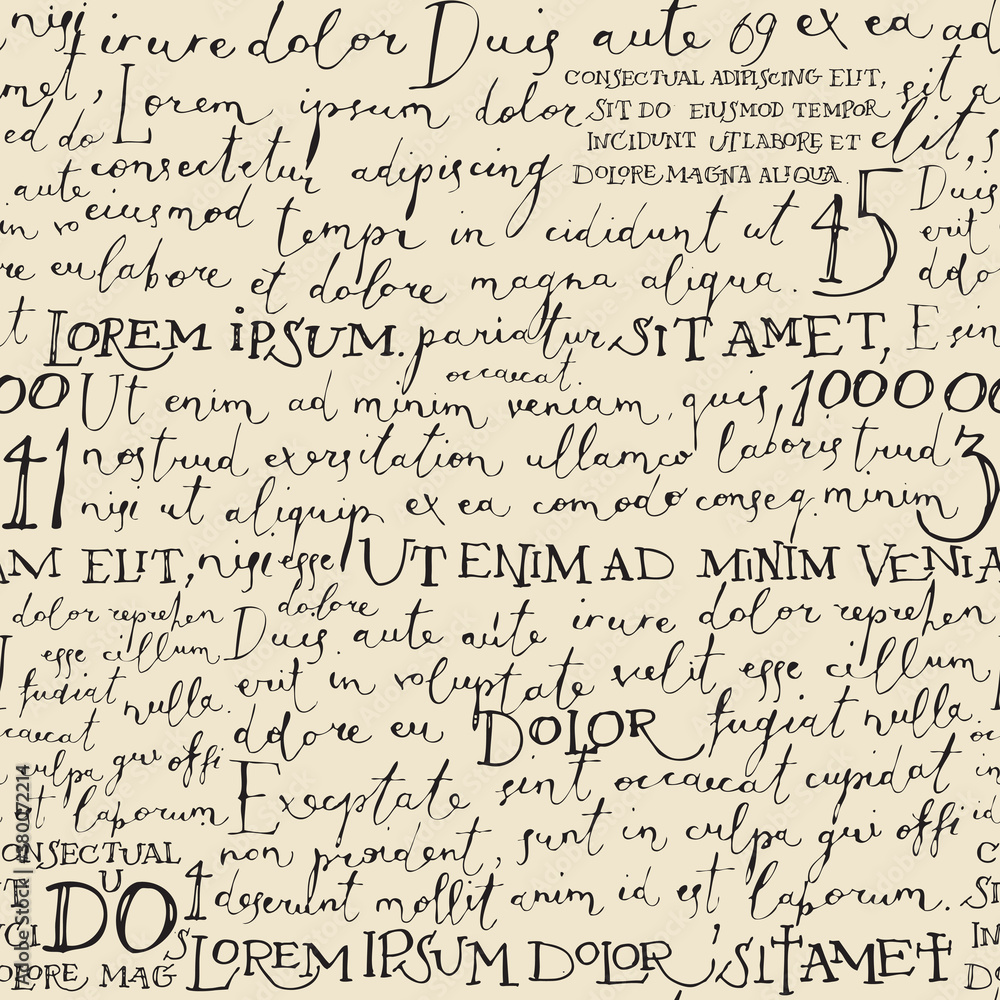 nisi irure dolor Duis aute 69 ex ea ad
met, Lorem ipsum dolor CONSECTUAL ADIPISCING ELIT, sit a
SIT DO EIUSMOD TEMPOR
ed do INCIDUNT UT LABORE ET elit, s
consectetur adipiscing DOLORE MAGNA ALIQUA. 45 Duis
aute eiusmod tempr in cididunt ut erit
in vo
re eu labore et dolore magna aliqua. ddo
t LOREM IPSUM. pariatur SIT AMET, E sin
occaecat.
00 Ut enim ad minim veniam, quis, 1000 00
41 nostrud exersitation ullamco laboris trud 3
nisi ut aliquip ex ea comodo conseq. minim
AM ELIT, nisi esse UT ENIM AD MINIM VENIA
dolor reprehen Duis dolore aute aute irure dolor reprehen
esse cillum erit in voluptate velit esse cillum
fugiat nulla. ddore eu DOLOR fugiat nulla.
caecat
culpa qui offi Exceptate sint occaecat cupidat in
t laborum non proident, sunt in culpa qui offi id
ONSECTUAL
U
DO 1 deserunt mollit anim id est laborum.
S LOREM IPSUM DOLOR, SIT AMET IN
OLORE MAG
Adobe Stock | #580072214